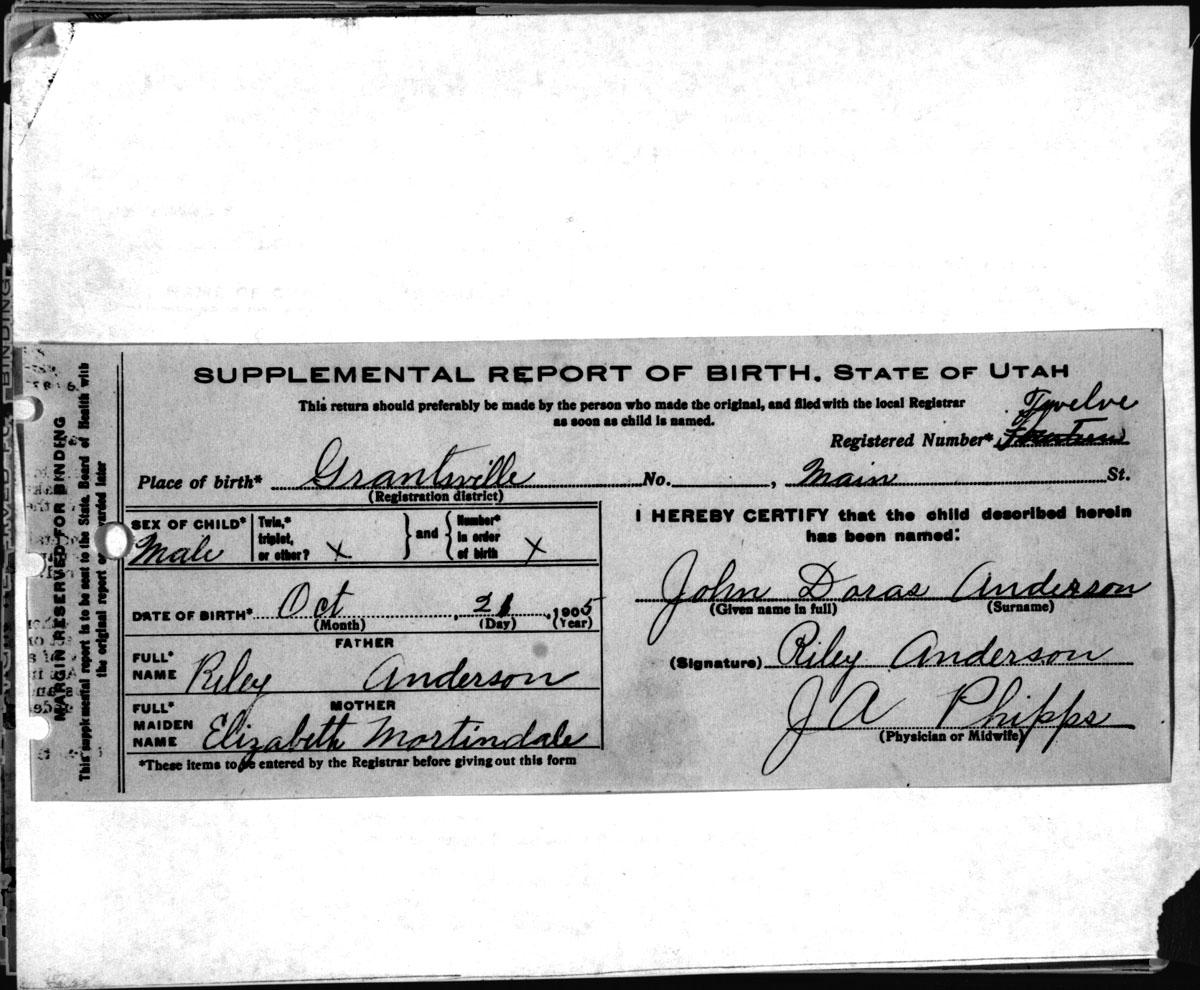 SUPPLEMENTAL REPORT OF BIRTH. STATE OF UTAH
This return should preferably be made by the person who made the original, and filed with the local Registrar
as soon as child is named.
Twelve
Registered Number*
Place of birth* Grantsville No. , Main St.
(Registration district)
SEX OF CHILD* Male
Twin,* triplet, or other? x } and { Number* in order of birth x
DATE OF BIRTH* Oct , 21 , 1905
(Month) (Day) (Year)
FATHER
FULL* NAME Riley Anderson
MOTHER
FULL* MAIDEN NAME Elizabeth Mortindale
*These items to be entered by the Registrar before giving out this form
I HEREBY CERTIFY that the child described herein
has been named:
John Doras Anderson
(Given name in full) (Surname)
(Signature) Riley Anderson
J A Phipps
(Physician or Midwife)
MARGIN RESERVED FOR BINDING
This supplemental report is to be sent to the State Board of Health with
the original report or forwarded later